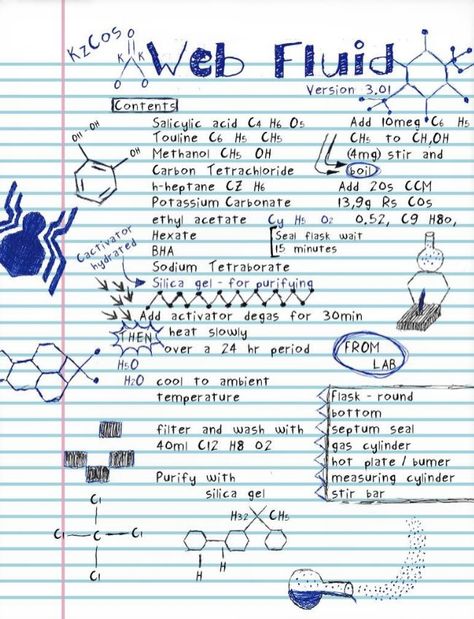 KzCos
K O K
O O
Web Fluid
Version 3.01
Contents
Salicylic acid C4 H6 O5
Touline C6 H5 CH5
Methanol CH5 OH
Carbon Tetrachloride
h-heptane CZ H6
Potassium Carbonate
ethyl acetate Cy H5 O2
Hexate
BHA
Sodium Tetraborate
Silica gel - for purifying
Add 10meg C6 H5
CH5 to CH,OH
(4mg) stir and
boil
Add 20s CCM
13,9g Rs COs
0.52, C9 H80,
Seal flask wait
15 minutes
OH - OH
OH
Cactivator
hydrated
Add activator degas for 30min
THEN heat slowly
over a 24 hr period
H5O
H2O cool to ambient
temperature
FROM
LAB
filter and wash with
40ml C12 H8 O2
Purify with
silica gel
flask - round
bottom
septum seal
gas cylinder
hot plate / bumer
measuring cylinder
stir bar
Cl
Cl C Cl
Cl
H32 CH5
H H